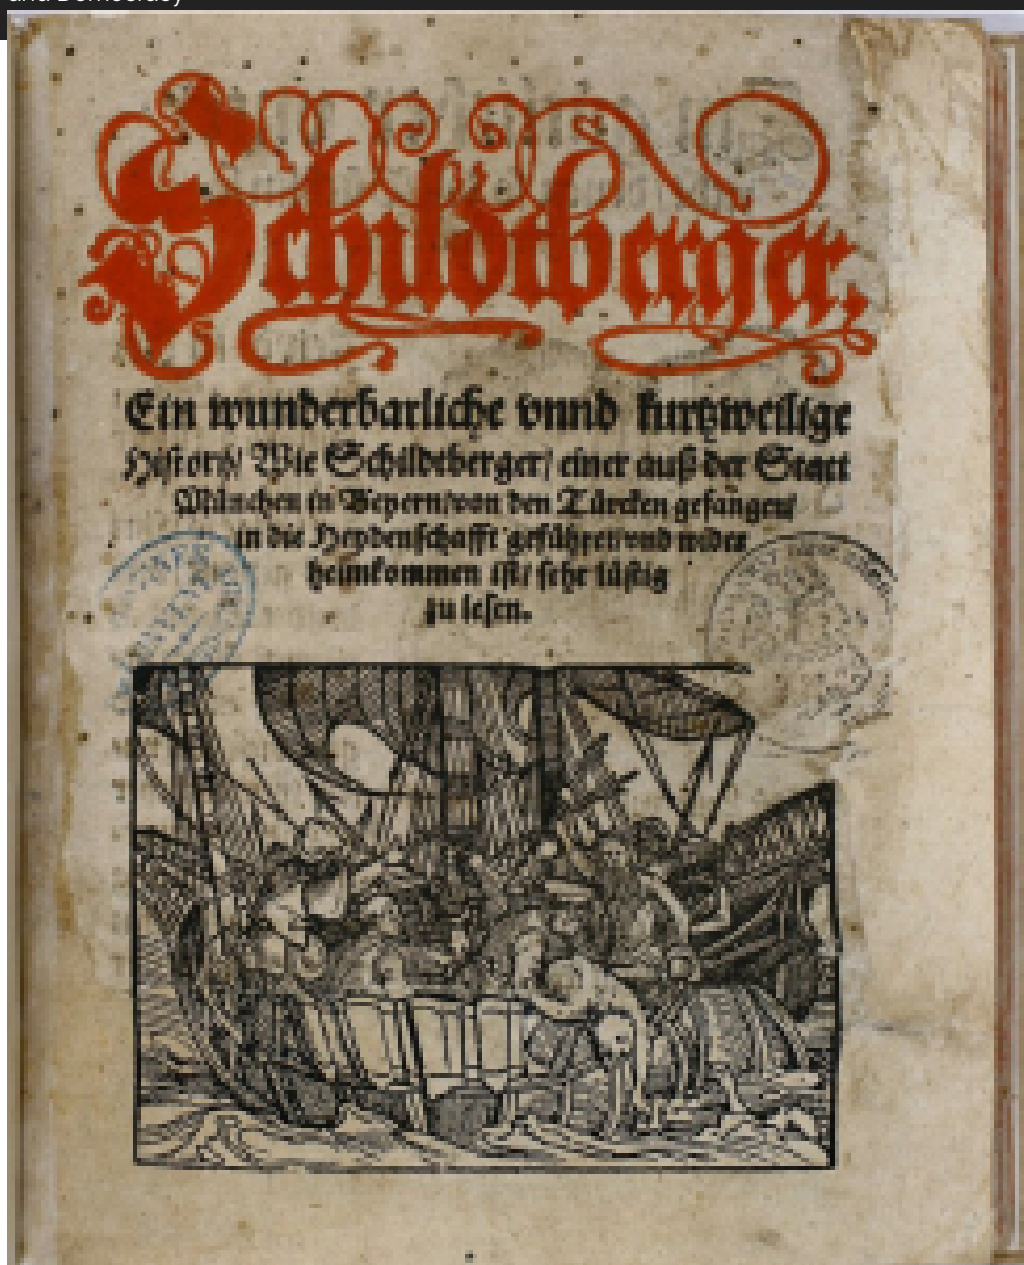 and Democracy
Schildtberger.
Ein wunderbarliche vnnd kurtzweilige
History/ Wie Schildtberger/ einer auß der Statt
München in Beyern/ von den Türcken gefangen/
in die Heydenschafft geführet vnd wider
heimkommen ist/ sehr lüstig
zu lesen.